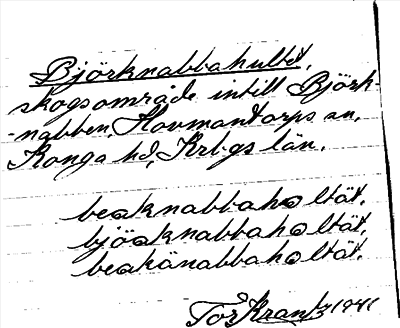 Björknabbahultet,
skogsområde intill Björk-
-nabben, Hovmantorps sn,
Konga hd, Krbgs län.
beaknabbahaltät.
bjöaknabbahaltät.
beakänabbahaltät.
Tor Krantz 1941